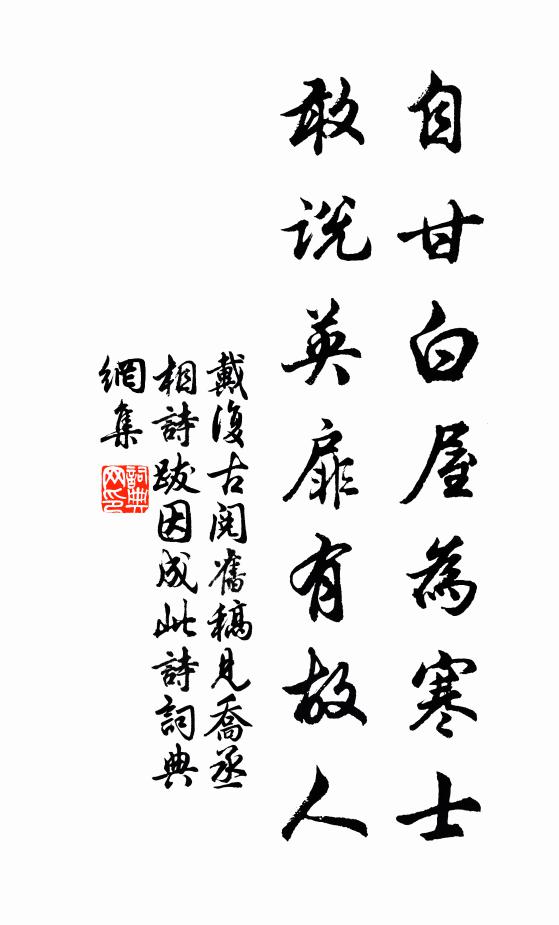 自甘白屋為寒士
敢说英扉有故人
戴復古閱舊稿見喬丞
相詩跋因成此詩詞典
網集
詞典
网印